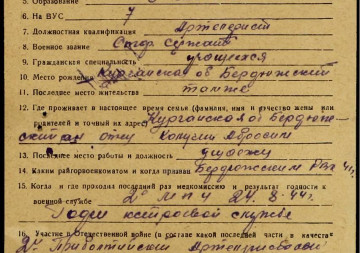 5. Образование
6. На ВУС 7
7. Должностная квалификация Артелерист
8. Военное звание Стар Сержант
9. Гражданская специальность учащехся
10. Место рождения Курганская об Бердюжский
11. Последнее место жительства тоже
12. Где проживает в настоящее время семья (фамилия, имя и отчество жены или
родителей и точный их адрес) Курганская об Бердюж-
ский отец
13. Последнее место работы и должность
14. Каким райгорвоенкоматом и когда призван Бердюжским РВК 41г.
15. Когда и где проходил последний раз медкомиссию и результат годности к
военной службе 24.8.44г.
Годен к строевой службе
16. Участие в Отечественной войне (в составе какой последней части в качестве
2й Прибалтийский